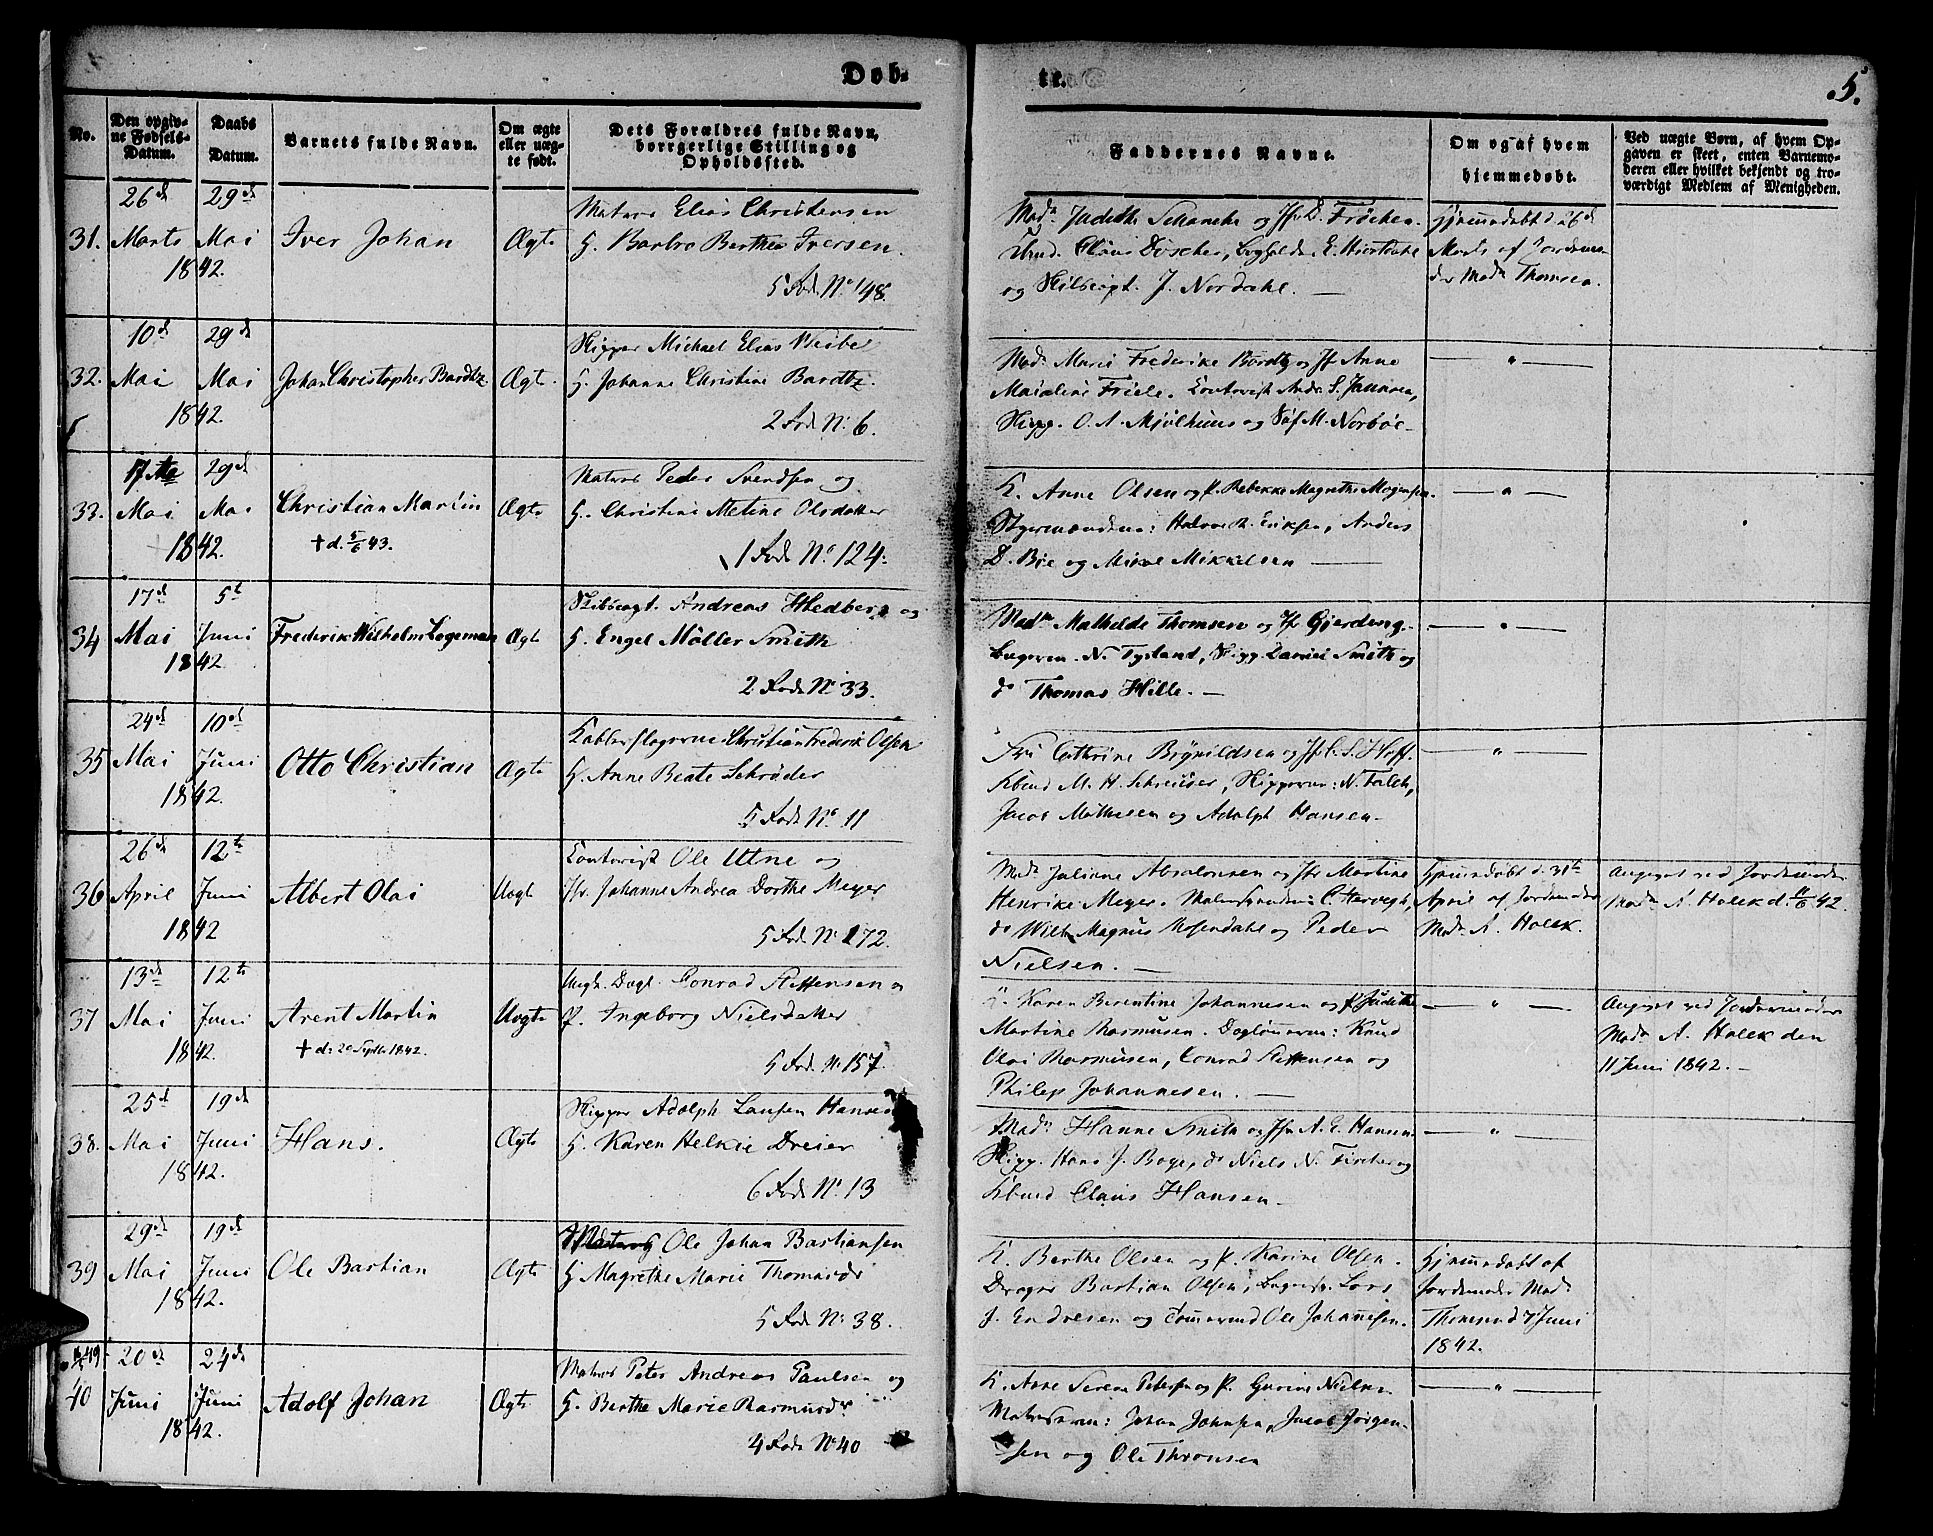 Døb-
te.
5.
No.
Den opgiv-
ne Fødsels-
Datum.
Daabs
Datum.
Barnets fulde Navn.
Om ægte
eller uæg-
te født.
Dets Forældres fulde Navn,
borgerlige Stilling og
Opholdssted.
Faddernes Navne.
Om og af hvem
hjemmedøbt.
Ved uægte Børn, af hvem Op-
gaven er skeet, enten Barnemo-
deren eller hvilket bekjendt og tro-
værdigt Medlem af Menigheden.
31.
26de Marts
29de Mai
1842.
Iver Johan
Ægte
Matros Elias Christensen
H. Barbro Berthea Iversen.
5 Fod. No 148.
Mad. Judith Schancke og Jfr D. Frøchen.
Claus Döscher, Bogholder E. Hiortdahl
og Skibscapt. J. Nordahl. —
Hjemmedøbt d 26de
Marts af Jordemo-
der Mad. Thomsen.
32.
10de Mai
29de Mai
1842.
Johan Christopher Bardtz
Ægte.
Skipper Michael Elias Wesbe
H. Johanne Christine Bardtz.
2 Fod. No. 6.
Mad. Marie Frederike Bardtz og Jfr Anne
Madalene Friele. Contorist Andr. S. Jannsen,
Skipp. O. A. Mjölhuus og M. Norbøe —
— " —
33.
17 Ma
Mai
29de Mai
1842.
Christian Martin
† d. 5/6 43.
Ægte
Matros Peder Svendsen og
H. Christine Metine Olsdatter
1 Fod. No. 124.
K. Anne Olsen og P. Rebekke Magrethe Mogensen.
Styrmændene: Halvor R. Eriksen, Anders
D. Bie og Mikkel Mikkelsen —
— " —
34
17de Mai
5te Juni
1842.
Frederik Wilhelm Logeman
Ægte
Skibscapt. Andreas Hedberg og
H. Engel Möller Smith
2 Fod. No 33.
Mad. Mathilde Thomsen og Jfr Gjerding.
N. Tysland, Skipp. Daniel Smith og
do Thomas Hille. —
— " —
35
24de Mai
10de Juni
1842.
Otto Christian
Ægte
Kobberslager Christian Frederik Olsen
H. Anne Beate Schrøder
5 Fod. No. 11
Fru Cathrine Brynildsen og Jfr C. S. Hoff.
Kbmd M. H. Schreuder, Skipperne: N. Falck,
Jacob Mathiesen og Adolph Hansen.
— " —
36
26de April
12te Juni
1842
Albert Olai
Uægte
Contorist Ole Utne og
Jfr. Johanne Andrea Dorthe Meyer
5 Fod. No. 172.
Mad. Juliane Absalonsen og Jfr Martine
Henrike Meyer. C. Hervegh,
do Wilh. Magnus Rosendahl og Peder
Nielsen. —
Hjemmedøbt d. 31te
April af Jordemoder
Mad. A. Holck.
Angivet ved Jordemoder
Mad. A. Holck d. 11/6 42.
37
13de Mai
12te Juni
1842.
Arent Martin
† d: 20 Septbr 1842.
Uægte
Ungk. Dagl. Conrad Steffensen og
P. Ingeborg Nielsdatter
5 Fod. No. 157.
K. Karen Berentine Johannesen og P. Judithe
Martine Rasmusen. Dagl: Knud
Olai Rasmusen, Conrad Steffensen og
Philip Johannesen. —
— " —
Angivet ved Jordemoder
Mad. A. Holck den
11 Juni 1842. —
38.
25de Mai
19de Juni
1842.
Hans.
Ægte
Skipper Adolph Hansen
H. Karen Helkie Dreier
6 Fod. No. 13
Mad. Hanne Smith og Jfr A. E. Hansen
Skipp. Hans J. Boge, do Niels N. Fischer og
Kbmd Claus Hansen.
— " —
39
29de Mai
19de Juni
1842.
Ole Bastian
Ægte
Ole Johan Bastiansen
H Magrethe Marie Thomasdr
5 Fod. No. 38.
K. Berthe Olsen og P. Karine Olsen.
Drager Bastian Olsen, Lars
J. Endresen og Tømermd Ole Johannesen.
Hjemmedøbt af
Jordemoder Mad.
Thomsen d 7 Juni
1842.
40
20de Juni
24de Juni
1842.
Adolf Johan
Ægte
Matros Peter Andreas Paulsen og
H. Berthe Marie Rasmusdr
4 Fod. No 40
K. Anne Serene Petersen og P. Gurine Nielsen
Matroserne: Johan Johnsen, Jacob Jørgen-
sen og Ole Thronsen
— " —